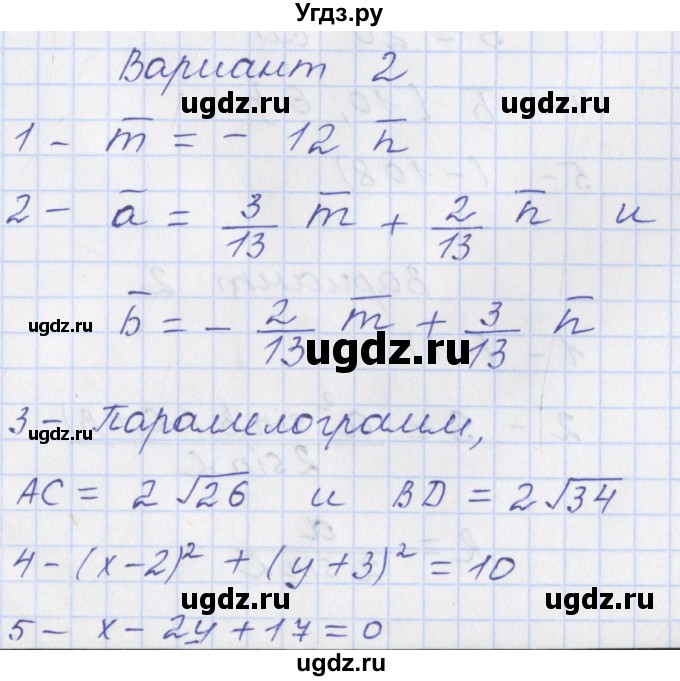 Угдз.ру
Вариант 2
ugdz.ru ugdz.ru
1 - m̅ = - 12 n̅
2 - a̅ = 3/13 m̅ + 2/13 n̅ и
ugdz.ru ugdz.ru
b̅ = - 2/13 m̅ + 3/13 n̅
ugdz.ru ugdz.ru
3 - Параллелограмм,
ugdz.ru ugdz.ru
AC = 2√26 и BD = 2√34
4 - (x-2)² + (y+3)² = 10
ugdz.ru ugdz.ru
5 - x - 2y + 17 = 0
ugdz.ru